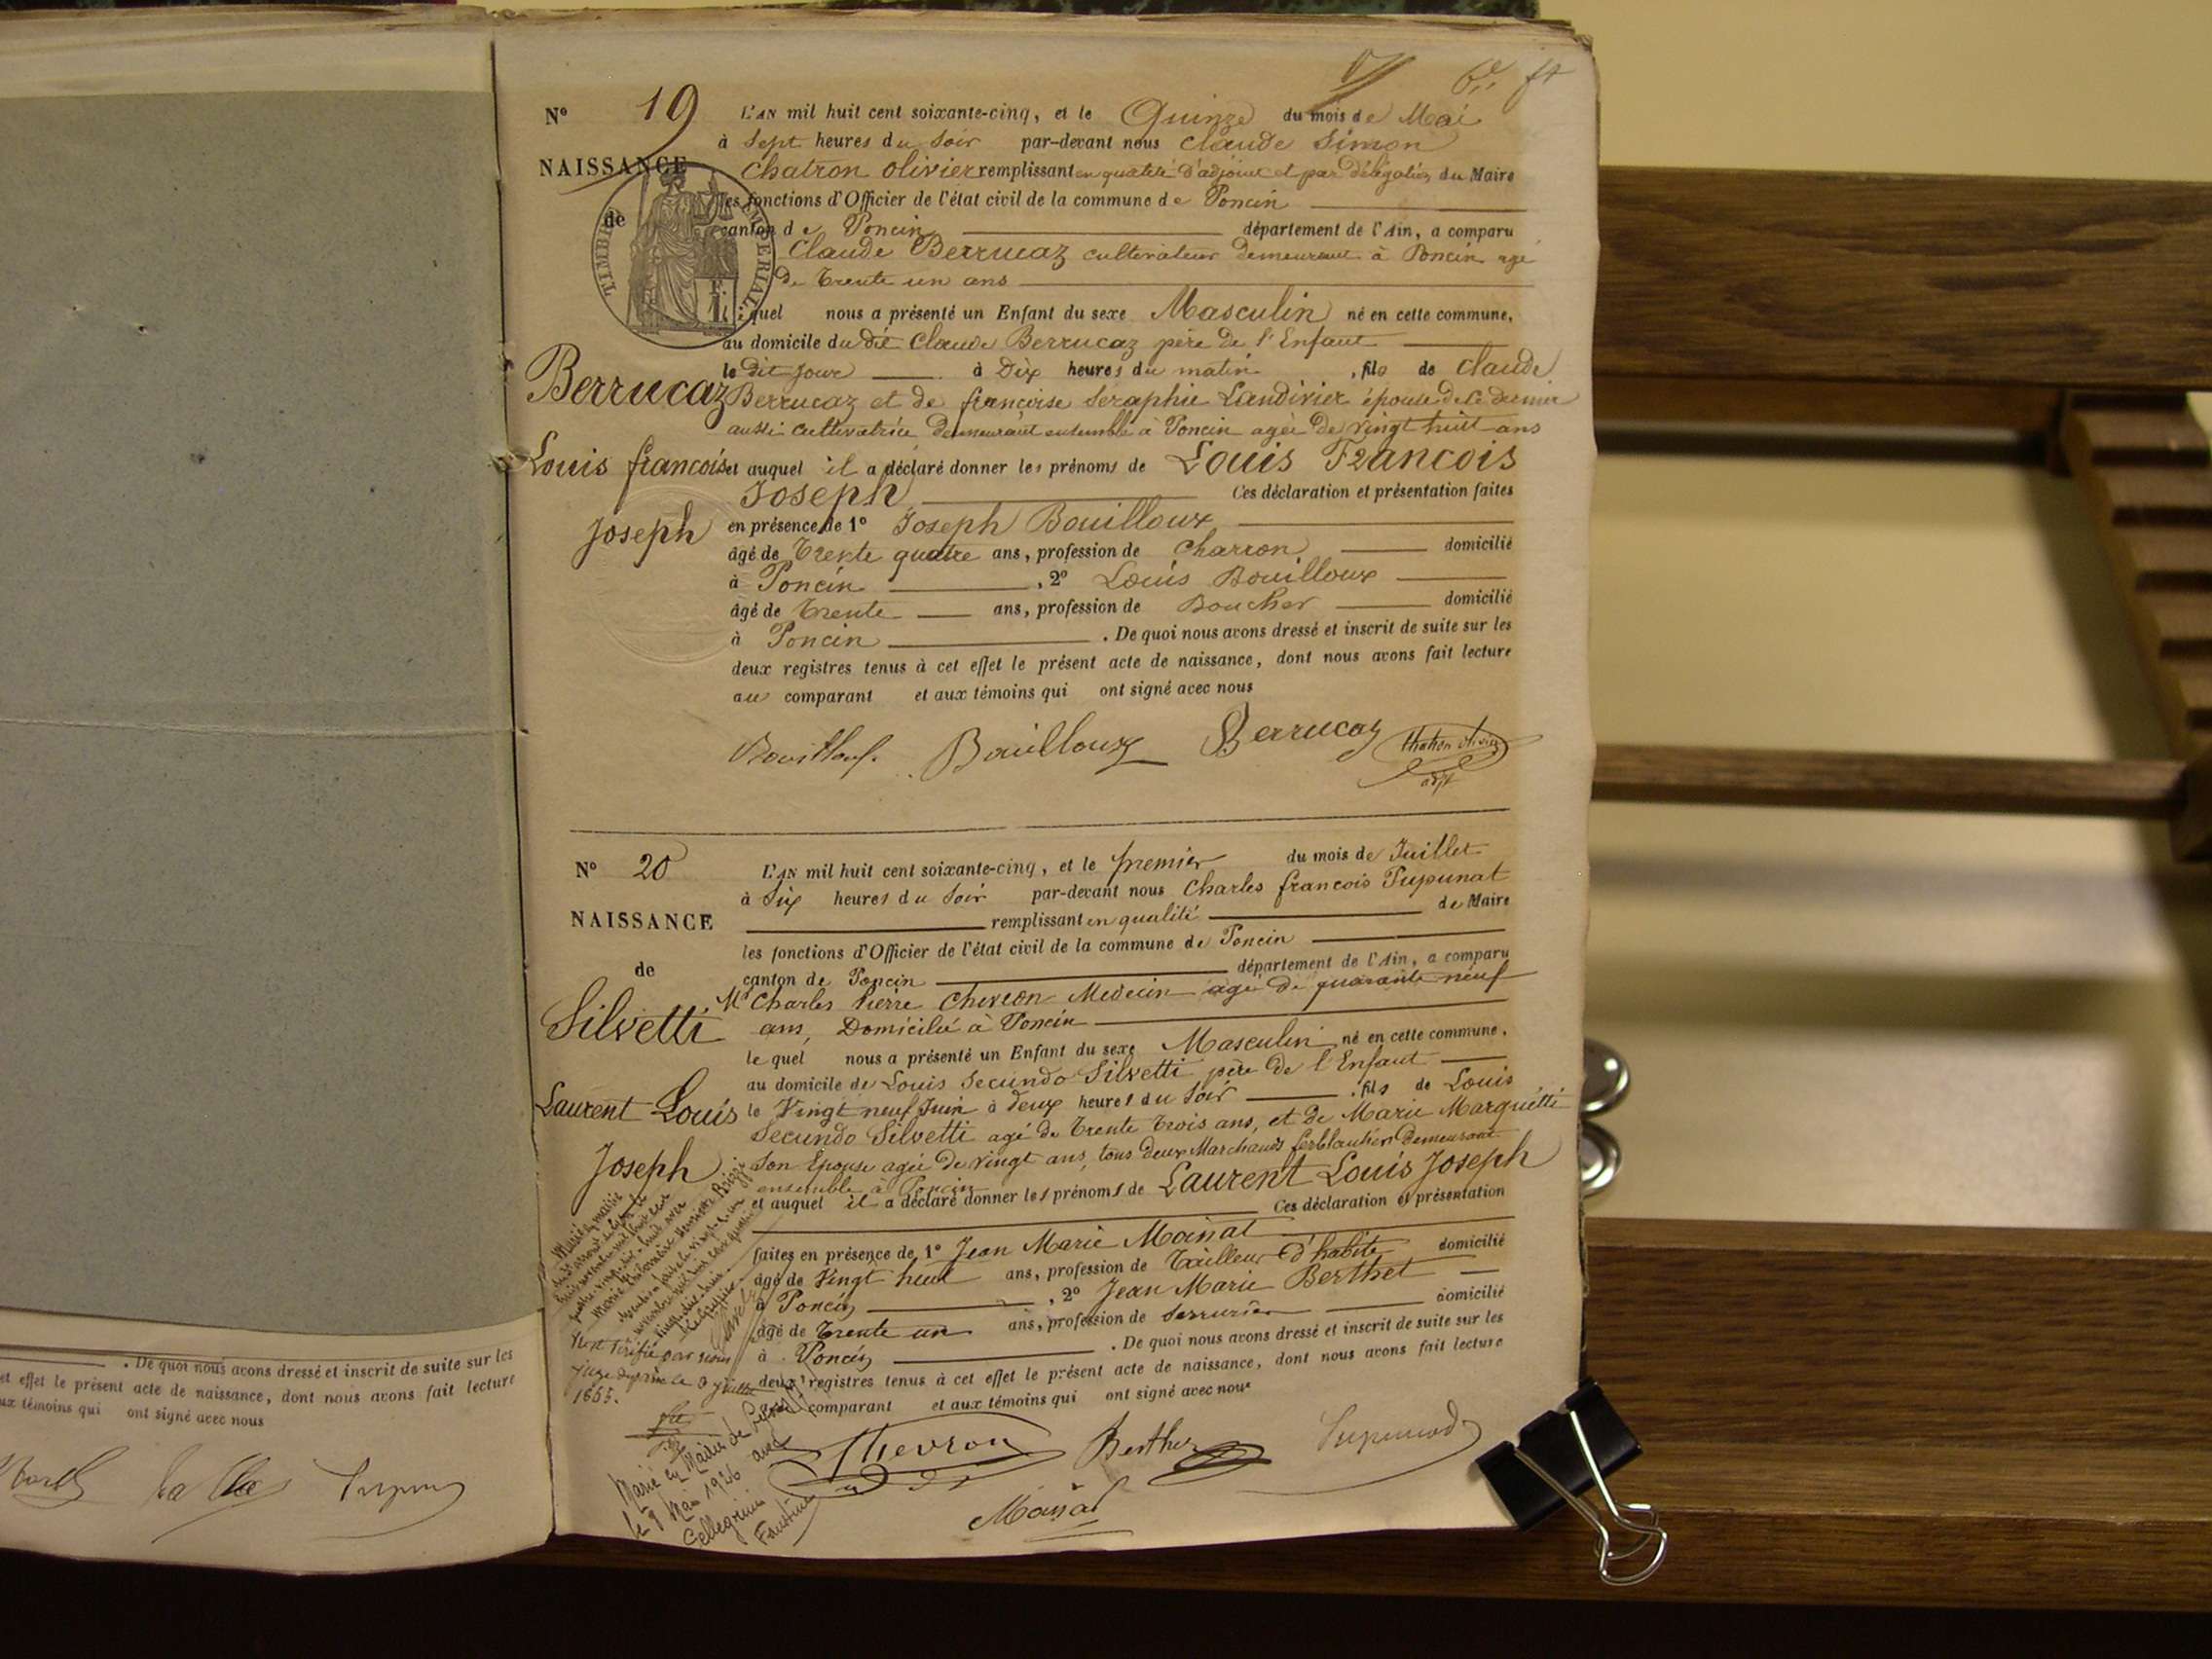 Nº 19
NAISSANCE
de
TIMBRE IMPERIAL
Berrucaz
Louis francois
Joseph
L'AN mil huit cent soixante-cinq, et le Quinze du mois de Mai
à Sept heures du Soir par-devant nous Claude Simon
Chatron Olivier remplissant en qualité d'adjoint et par délégation du Maire
les fonctions d'Officier de l'état civil de la commune de Poncin
canton de Poncin département de l'Ain, a comparu
Claude Berrucaz cultivateur demeurant à Poncin agé
de trente un ans
lequel nous a présenté un Enfant du sexe Masculin né en cette commune,
au domicile du dit Claude Berrucaz père de l'Enfant
le dit jour à Dix heures du matin, fils de Claude
Berrucaz et de francoise Seraphie Landivier épouse de ce dernier
aussi cultivatrice demeurant ensemble à Poncin agée de vingt huit ans
et auquel il a déclaré donner les prénoms de Louis Francois
Joseph Ces déclaration et présentation faites
en présence de 1º Joseph Bouilloux
âgé de Trente quatre ans, profession de Charron domicilié
à Poncin, 2º Louis Bouilloux
âgé de Trente ans, profession de Boucher domicilié
à Poncin. De quoi nous avons dressé et inscrit de suite sur les
deux registres tenus à cet effet le présent acte de naissance, dont nous avons fait lecture
au comparant et aux témoins qui ont signé avec nous
Bouilloux Bouilloux Berrucaz Chatron Olivier
adjt
Nº 20
NAISSANCE
de
Silvetti
Laurent Louis
Joseph
L'AN mil huit cent soixante-cinq, et le premier du mois de Juillet
à Six heures du Soir par-devant nous Charles francois Pupunat
remplissant en qualité de Maire
les fonctions d'Officier de l'état civil de la commune de Poncin
canton de Poncin département de l'Ain, a comparu
Mr Charles Pierre Chevron Medecin agé de quarante neuf
ans, Domicilié à Poncin
lequel nous a présenté un Enfant du sexe Masculin né en cette commune,
au domicile de Louis Secundo Silvetti père de l'Enfant
le Vingt neuf Juin à deux heures du Soir, fils de Louis
Secundo Silvetti agé de trente trois ans, et de Marie Marquetti
Son Epouse agée de vingt ans, tous deux Marchands ferblantiers Demeurant
ensemble à Poncin
et auquel il a déclaré donner les prénoms de Laurent Louis Joseph
Ces déclaration et présentation
faites en présence de 1º Jean Marie Moinat
âgé de Vingt huit ans, profession de Tailleur d'habits domicilié
à Poncin, 2º Jean Marie Berthet
âgé de Trente un ans, profession de Serrurier domicilié
à Poncin. De quoi nous avons dressé et inscrit de suite sur les
deux registres tenus à cet effet le présent acte de naissance, dont nous avons fait lecture
comparant et aux témoins qui ont signé avec nous
Chevron Berthet Pupunat
Moinat
vérifié par nous
juge le 3 juillet
1865.
Marié en Mairie de
le 9 Mai 1926 avec
Pellegrinin
Faustine
. De quoi nous avons dressé et inscrit de suite sur les
et effet le présent acte de naissance, dont nous avons fait lecture
ux témoins qui ont signé avec nous